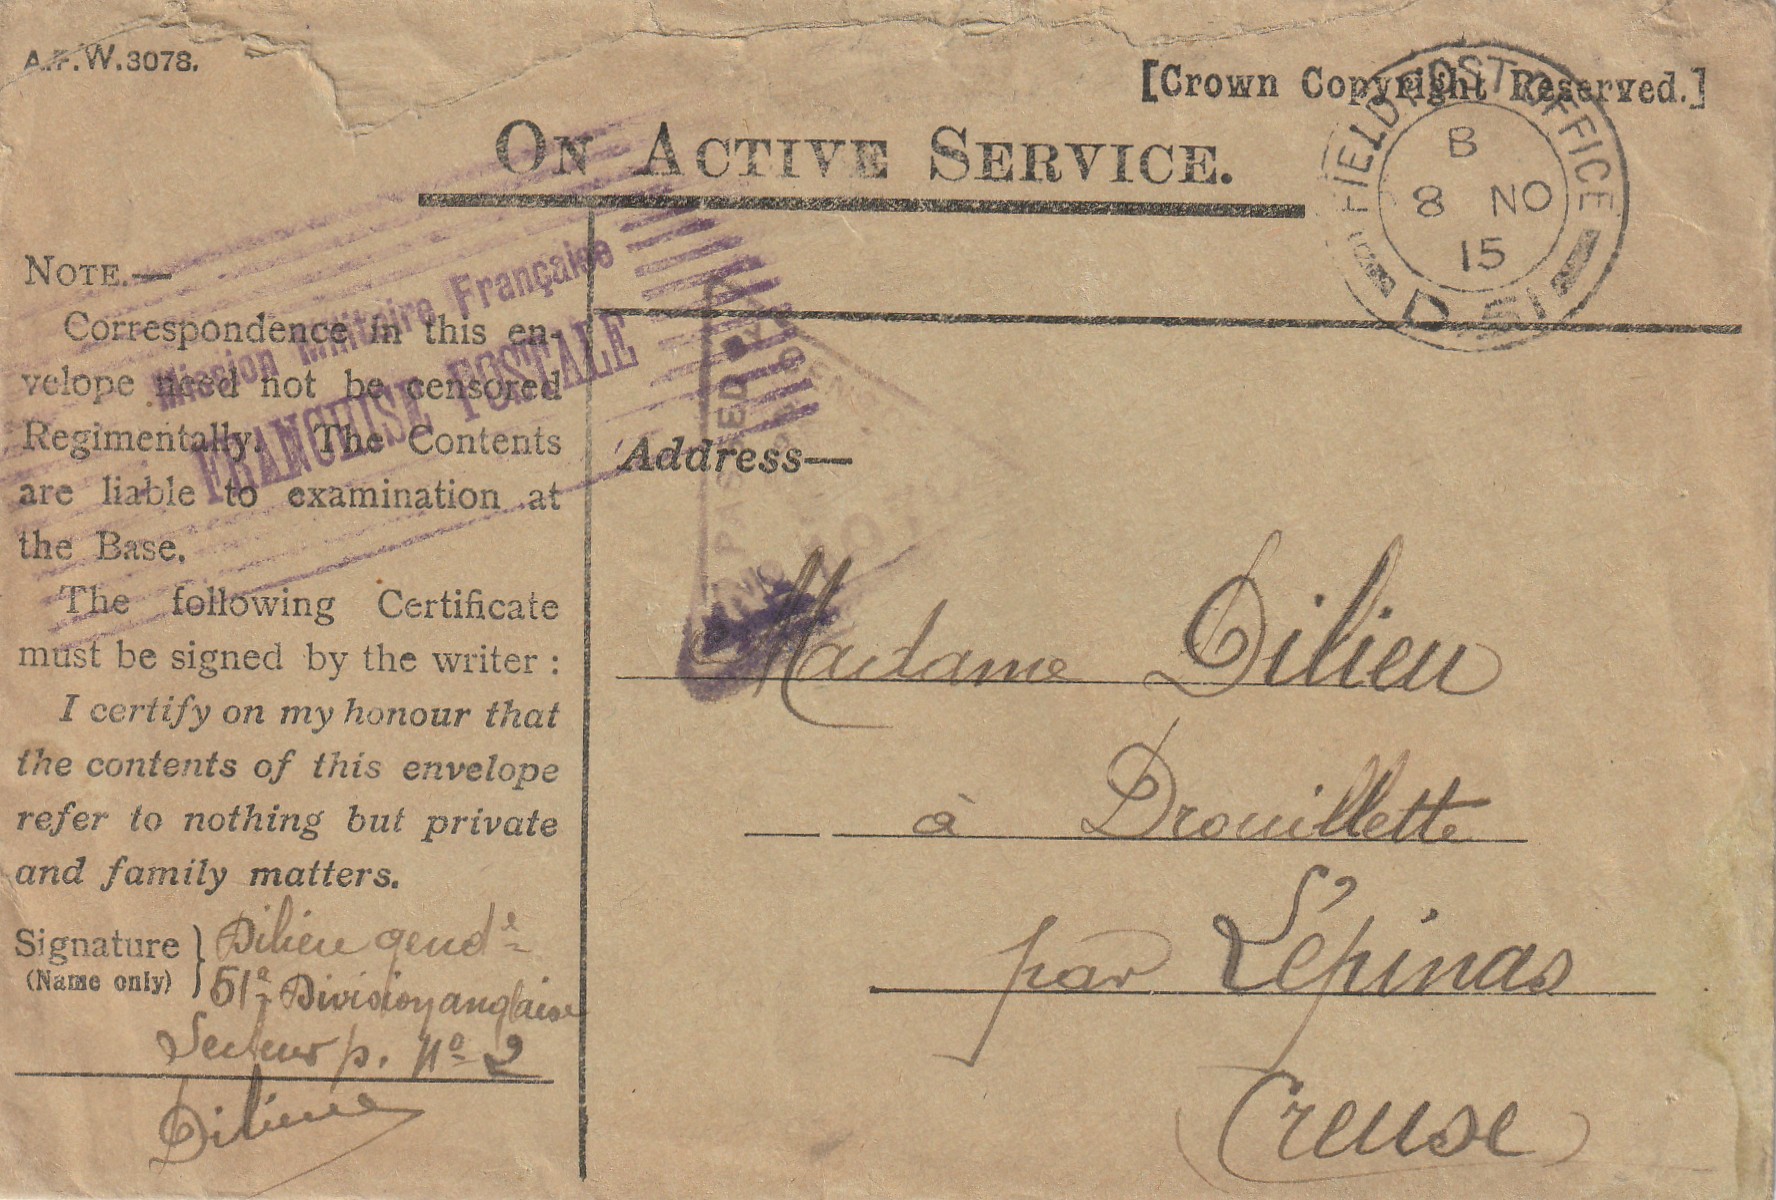 A.F.W.3078.
[Crown Copyright Reserved.]
FIELD POST OFFICE
B
8 NO
15
D 51
ON ACTIVE SERVICE.
Mission Militaire Française
FRANCHISE POSTALE
NOTE.—
Correspondence in this en-
velope need not be censored
Regimentally. The Contents
are liable to examination at
the Base.
The following Certificate
must be signed by the writer :
I certify on my honour that
the contents of this envelope
refer to nothing but private
and family matters.
Signature
(Name only)
Dilieu gend.e
51e Division anglaise
Secteur p. No 2
Dilieu
PASSED BY
CENSOR
Address—
Madame Dilieu
à Drouillette
par L'épinas
Creuse